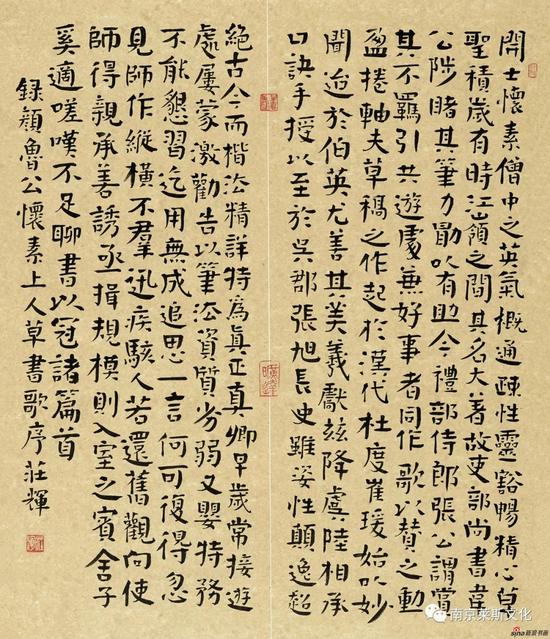 開士懷素僧中之英氣概通疎性靈豁暢精心草
聖積歲有時江嶺之間其名大著故吏部尚書韋
公陟睹其筆力勖以有助今禮部侍郎張公謂賞
其不羈引共遊處兼好事者同作歌以贊之動
盈捲軸夫草稿之作起於漢代杜度崔瑗始以妙
聞迨於伯英尤善其美羲獻茲降虞陸相承
口訣手授以至於吳郡張旭長史雖姿性顛逸超
絕古今而楷法精詳特為真正真卿早歲常接遊
處屢蒙激勸告以筆法資質劣弱又嬰特務
不能懇習迄用無成追思一言何可復得忽
見師作縱橫不羣迅疾駭人若還舊觀向使
師得親承善誘亟揖規模則入室之賓舍子
奚適嗟嘆不足聊書以冠諸篇首
錄顏魯公懷素上人草書歌序莊輝
南京莱斯文化
sina新浪书画